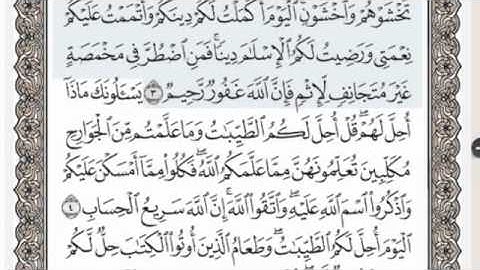 تَخْشَوْهُمْ وَٱخْشَوْنِ ٱلْيَوْمَ أَكْمَلْتُ لَكُمْ دِينَكُمْ وَأَتْمَمْتُ عَلَيْكُمْ
نِعْمَتِى وَرَضِيتُ لَكُمُ ٱلْإِسْلَـٰمَ دِينًا فَمَنِ ٱضْطُرَّ فِى مَخْمَصَةٍ
غَيْرَ مُتَجَانِفٍ لِّإِثْمٍ فَإِنَّ ٱللَّهَ غَفُورٌ رَّحِيمٌ ٣ يَسْـَٔلُونَكَ مَاذَآ
أُحِلَّ لَهُمْ قُلْ أُحِلَّ لَكُمُ ٱلطَّيِّبَـٰتُ وَمَا عَلَّمْتُم مِّنَ ٱلْجَوَارِحِ
مُكَلِّبِينَ تُعَلِّمُونَهُنَّ مِمَّا عَلَّمَكُمُ ٱللَّهُ فَكُلُوا۟ مِمَّآ أَمْسَكْنَ عَلَيْكُمْ
وَٱذْكُرُوا۟ ٱسْمَ ٱللَّهِ عَلَيْهِ وَٱتَّقُوا۟ ٱللَّهَ إِنَّ ٱللَّهَ سَرِيعُ ٱلْحِسَابِ ٤
ٱلْيَوْمَ أُحِلَّ لَكُمُ ٱلطَّيِّبَـٰتُ وَطَعَامُ ٱلَّذِينَ أُوتُوا۟ ٱلْكِتَـٰبَ حِلٌّ لَّكُمْ